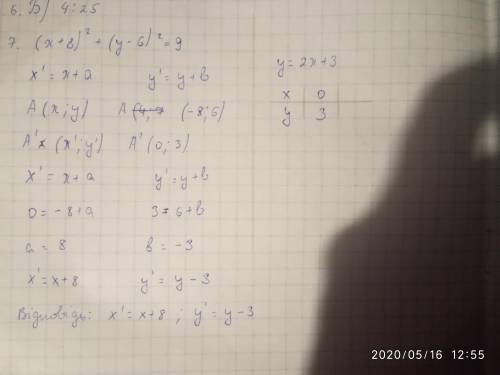 6. Б) 4:25
7. (x+8)² + (y-6)² = 9
x' = x+a y' = y+b
A (x; y) A (-8; 6)
A' (x'; y') A' (0; 3)
x' = x+a y' = y+b
0 = -8+a 3 = 6+b
a = 8 b = -3
x' = x+8 y' = y-3
Відповідь: x' = x+8 ; y' = y-3
y = 2x+3
x 0
y 3
2020/05/16 12:55